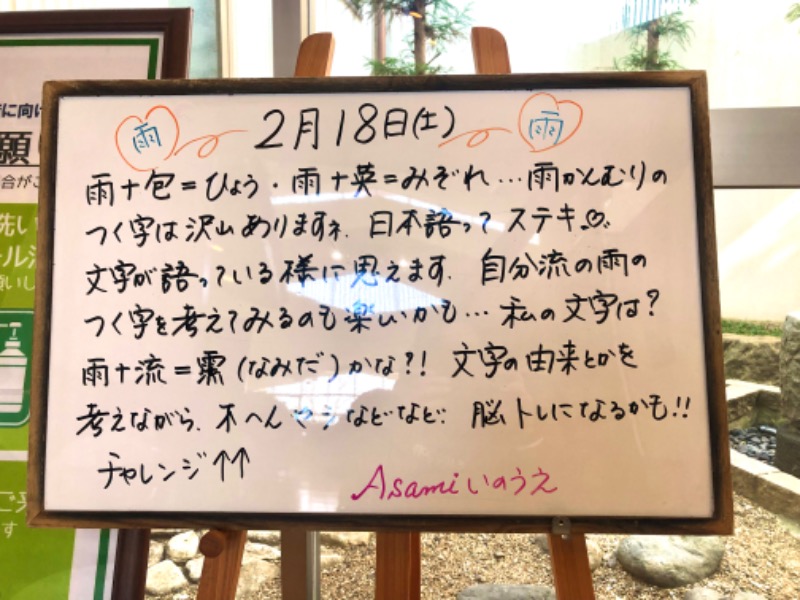 に向け
願い
合がご
雨 2月18日(土) 雨
雨+包=ひょう・雨+英=みぞれ…雨かんむりの
つく字は沢山ありますネ. 日本語ってステキ♡
文字が語っている様に思えます. 自分流の雨の
つく字を考えてみるのも楽しいかも… 私の文字は?
雨+流= (なみだ)かな?!! 文字の由来とかを
考えながら、木へん などなど… 脳トレになるかも!!
チャレンジ↑↑
Asamiいのうえ
洗い
ール消
願いし
ご来
す